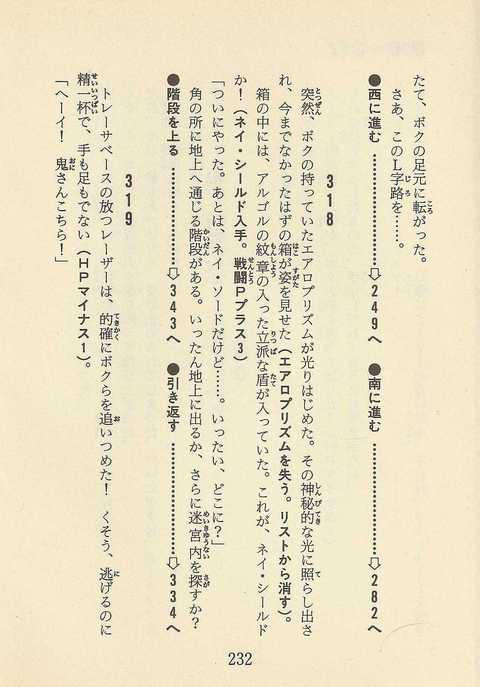 たて、ボクの足元に転がった。
さあ、このL字路を……。
●西に進む…………⇨249へ　●南に進む…………⇨282へ
318
突然、ボクの持っていたエアロプリズムが光りはじめた。その神秘的な光に照らし出さ
れ、今までなかったはずの箱が姿を見せた（エアロプリズムを失う。リストから消す）。
箱の中には、アルゴルの紋章の入った立派な盾が入っていた。これが、ネイ・シールド
か！（ネイ・シールド入手。戦闘Pプラス3）
「ついにやった。あとは、ネイ・ソードだけど……。いったい、どこに？」
角の所に地上へ通じる階段がある。いったん地上に出るか、さらに迷宮内を探すか？
●階段を上る…………⇨343へ　●引き返す…………⇨334へ
319
トレーサベースの放つレーザーは、的確にボクらを追いつめた！　くそう、逃げるのに
精一杯で、手も足もでない（HPマイナス1）。
「ヘーイ！　鬼さんこちら！」
232